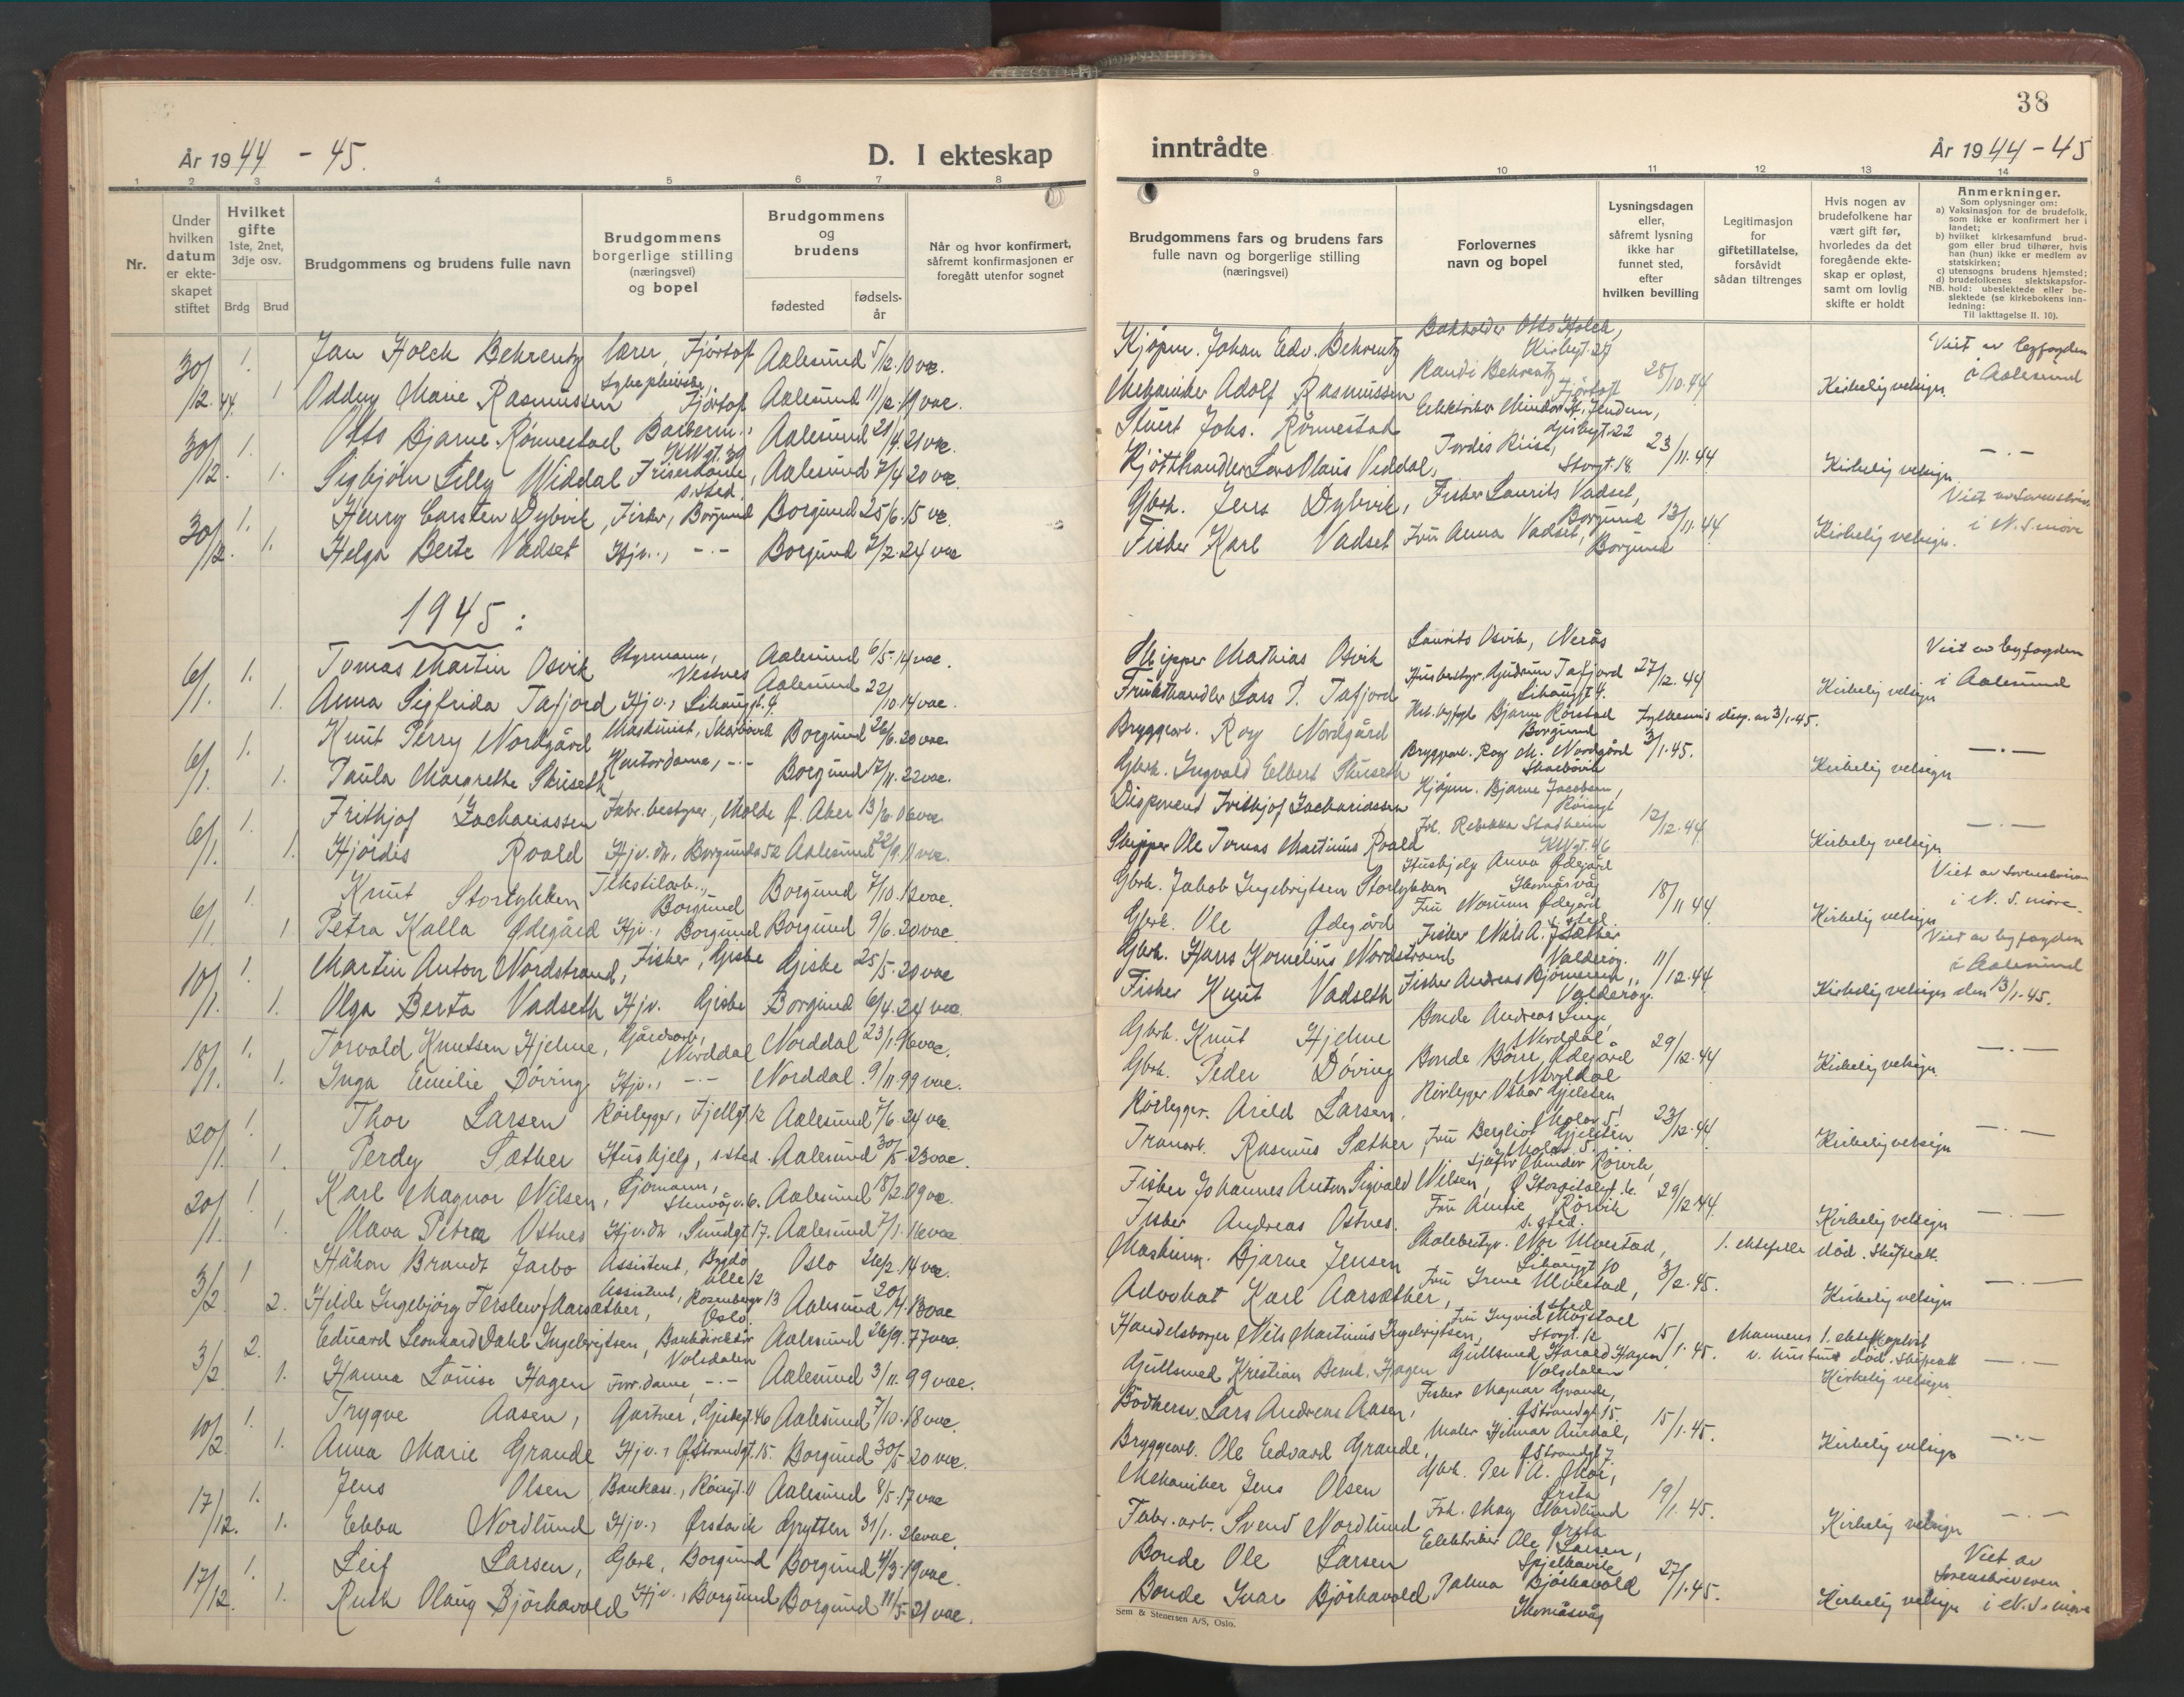 38
År 1944 - 45.
D. I ekteskap
inntrådte
År 1944-45
1 2 3 4 5 6 7 8 9 10 11 12 13 14
Nr.
Under hvilken datum er ekteskapet stiftet
Hvilket gifte
1ste, 2net, 3dje osv.
Brdg Brud
Brudgommens og brudens fulle navn
Brudgommens borgerlige stilling (næringsvei) og bopel
Brudgommens og brudens
fødested fødselsår
Når og hvor konfirmert, såfremt konfirmasjonen er foregått utenfor sognet
Brudgommens fars og brudens fars fulle navn og borgerlige stilling (næringsvei)
Forlovernes navn og bopel
Lysningsdagen eller, såfremt lysning ikke har funnet sted, efter hvilken bevilling
Legitimasjon for giftetillatelse, forsåvidt sådan tiltrenges
Hvis nogen av brudefolkene har vært gift før, hvorledes da det foregående ekteskap er opløst, samt om lovlig skifte er holdt
Anmerkninger.
Som oplysninger om:
a) Vaksinasjon for de brudefolk, som ikke er konfirmert her i landet;
b) hvilket kirkesamfund brudgom eller brud tilhører, hvis han (hun) ikke er medlem av statskirken;
c) utensogns brudens hjemsted;
d) brudefolkenes slektskapsforhold: ubeslektede eller beslektede (se kirkebokens innledning:
NB.
Til iakttagelse II. 10).
30/12.44. 1. Jan Holck Behrentz lærer, Fjörtoft Aalesund 5/12.10 vac. Kjöpm. Johan Edv. Behrentz Bokholder Otto Holck, Kirkegt. 27 Viet av byfogden
1 Oddny Marie Rasmussen Fjörtoft Aalesund 11/12.19 vac. Mekaniker Adolf Rasmussen Randi Behrentz Fjörtoft 28/10.44 Kirkelig velsign. i Aalesund
30/12. 1. Otto Bjarne Rönnestad Barberm., KWgt. 39 Aalesund 21/4.21 vac. Stuert Johs. Rönnestad
1. Sigbjörn Lilly Widdal Friserdame, s.sted. Aalesund 7/4 20 vac. Kjötthandler Lars Olaus Viddal, Jordis Riise, Storgt. 18. 23/11.44 Kirkelig velsign. -.-
30/12. 1. Henry Carsten Dybvik, Fisker, Borgund Borgund 25/6.15 vc. Gbrk. Jens Dybvik, Fisker Laurits Vadset, Borgund
1. Helga Berte Vadset Hjv., -.- Borgund 7/2.24 vac Fisker Karl Vadset Fru Anna Vadset, Borgund 13/11.44 Kirkelig velsign. i N. S.möre
1945:
6/1. 1. Tomas Martin Osvik Styrmann, Vestnes Aalesund 6/5.14 vac. Skipper Mathias Osvik Laurits Osvik, Nerås Viet av byfogden
1. Anna Sigfrida Tafjord Hjv., Lihaugt. 4 Aalesund 22/10.14 vac. Frukthandler Lars P. Tafjord Husbestyr. Gudrun Tafjord Lihaugt 4. 27/12.44 Kirkelig velsign i Aalesund
6/1. 1. Knut Perry Nordgård Maskinist, Skarbövik Borgund 26/6.20 vac. Bryggearb. Roy Nordgård Bjarne Rörstad Borgund Fylkesm's disp. av 3/1-45.
1. Paula Margrethe Skuseth Kontordame, -.- Borgund 17/11.22 vac. Gbrk. Ingvald Elbert Skuseth Bryggearb. Roy M. Nordgård Skarbövik 3/1.45. Kirkelig velsign -.-
6/1. 1. Frithjof Zachariassen Fabr. bestyrer, Molde Ø. Aker 13/6.06 vac Disponent Frithjof Zachariassen Kjöpm. Bjarne Jacobsen,
1. Hjördis Roald Hjv. dtr, Borgundv. 52 Aalesund 22/9.11 vac. Skipper Ole Tomas Martinus Roald Frk. Rebekka Stadheim KWgt. 46 12/12.44 Kirkelig velsign -.-
6/1. 1. Knut Storlykken Tekstilarb., Borgund Borgund 7/10.12 vac. Gbrk. Jakob Ingebrigtsen Storlykken Hushjelp Anna Ödegård
1 Petra Kalla Ødegård Hjv., Borgund Borgund 9/6.20 vac. Gbrk. Ole Ødegård Fru Norunn Ødegård s.sted 18/11 44 Kirkelig velsign i N. S.möre.
10/1. 1. Martin Anton Nordstrand, Fisker, Giske Giske 25/5.20 vac Gbrk. Hans Kornelius Nordstrand Fisker Nils A. Sæther Valderöy. Viet av byfogden
1. Olga Berta Vadseth Hjv. Giske Borgund 6/4.24 vac. Fisker Knut Vadseth Fisker Andreas Björnerem, Valderöy. 11/12.44 Kirkelig velsign den 13/1-45. i Aalesund
18/1. 1. Torvald Knutsen Hjelme, Gårdsarb., Norddal Norddal 23/1.96 vac. Gbrk. Knut Hjelme Bonde Andreas Linge, Norddal
1. Inga Emilie Döving Hjv., -.- Norddal 9/11.99 vac. Gbrk. Peder Döving Bonde Börre Ødegård Norddal 29/12.44 Kirkelig velsign. -.-
20/1. 1. Thor Larsen Rörlegger, Fjellgt. 12 Aalesund 7/6.24 vac. Rörlegger. Arild Larsen. Rörlegger Oskar Gjelsten, Molov. 5
1. Perdy Sæther Hushjelp, s.sted. Aalesund 30/5.23 vac. Tranarb. Rasmus Sæther, Fru Bergliot Gjelsten Molov. 5. 23/12.44 Kirkelig velsign -.-
20/1. 1. Karl Magnor Nilsen, Sjömann, Aalesund 18/2.09 vc. Fisker Johannes Anton Sigvald Nilsen, Sjåför Minder Rörvik,
1. Olava Petrea Ostnes Hjv. dtr, Sundgt. 17. Aalesund 7/1.16 vac Fisker Andreas Ostnes. Fru Aminie Rörvik s.sted. 29/12.44 Kirkelig velsign -.-
3/2. 1 Håkon Brandt Jarbo Assistent, Bygdö alle 12 Oslo 26/2.14 vac. Maskinm. Bjarne Jensen Skolebestyr. Nor Ulvestad, Lihaugt 10 1. ektefelle död. Skifteatt.
2. Hilde Ingebjörg Ferslew f. Aarsæther, Assistent, Rosenbergv 13 Oslo Aalesund 20/4.13 vac Advokat Karl Aarsæther, Fru Irene Ulvestad, s.sted 3/2.45. Kirkelig velsign -.-
3/2 2. Eduard Leonhard Dahl Ingebrigtsen, Bankdirektör Volsdalen Aalesund 26/9.77 vac. Handelsborger Nils Martinus Ingebrigtsen, Fru Ingvild Mögstad Storgt. 12 Mannens 1. ekteskap löst v. hustrus död. Skifteatt
1. Hanna Louise Hagen Forr.dame, -.- Aalesund 3/11.99 vac. Gullsmed Kristian Bernt. Hagen Gullsmed Harald Hagen Volsdalen 15/1.45. Kirkelig velsign. -.-
10/2. 1. Trygve Aasen, Gartner, Giskegt. 46 Aalesund 7/10.18 vac. Bödkersv. Lars Andreas Aasen, Fisker Magnar Grande, ØStrandgt. 15.
1. Anna Marie Grande Hjv., ØStrandgt. 15. Borgund 30/5.20 vac. Bryggearb. Ole Edvard Grande, Maler Hilmar Aurdal, ØStrandgt 7 15/1.45. Kirkelig velsign -.-
17/12. 1. Jens Olsen Bankass., Röisgt. 11 Aalesund 8/5.17 vac Mekaniker Jens Olsen Gbrk. Per A. Moe, Ørsta
1. Ebba Nordlund Hjv., Ørstavik Grytten 31/1.26 vac. Fabr.arb. Svend Nordlund Frk. Mag Nordlund Ørsta 19/1.45. Kirkelig velsign -.-
17/12. 1. Leif Larsen, Gbrk, Borgund Borgund 4/3.19 vac. Bonde Ole Larsen Elektriker Ole Larsen, Spjelkavik Viet av Sorenskriveren
1. Ruth Olaug Björkavold Hjv., Borgund Borgund 11/5.21 vac. Bonde Ivar Björkavold Palma Björkavold 27/1.45. Kirkelig velsign i N. S.möre
Sem & Stenersen A/S, Oslo.